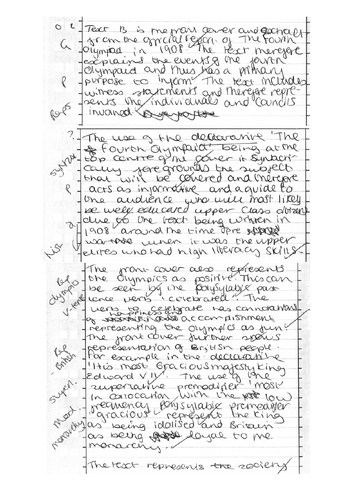 Text B is the front cover and
from the official report of The fourth
Olympiad in 1908. The text therefore
explains the events of the fourth
Olympiad and thus has a primary
purpose to inform. The text includes
witness statements and therefore repre-
sents the individuals and councils
involved.
The use of the declarative 'The
fourth Olympiad' being at the
top centre of the cover it syntact-
ically foregrounds the subject
that will be covered and therefore
acts as informative and a guide to
the audience who will most likely
be well educated upper class
due to the text being written in
1908 around the time
when it was the upper
elites who had high literacy skills
The front cover also represents
the Olympics as positive. This can
be seen by the polysyllabic past
tense verb 'celebrated'. The
verb to celebrate has connotations
of happiness and accomplishment
representing the Olympics as fun.
The front cover further shows
representation of British people
for example in the declarative
'His most Gracious majesty king
Edward VII'. The use of the
superlative premodifier 'most'
in collocation with the low
frequency polysyllabic premodifier
'gracious' represent the king
as being idolised and Britain
as being loyal to the
monarchy.
The text represents the society